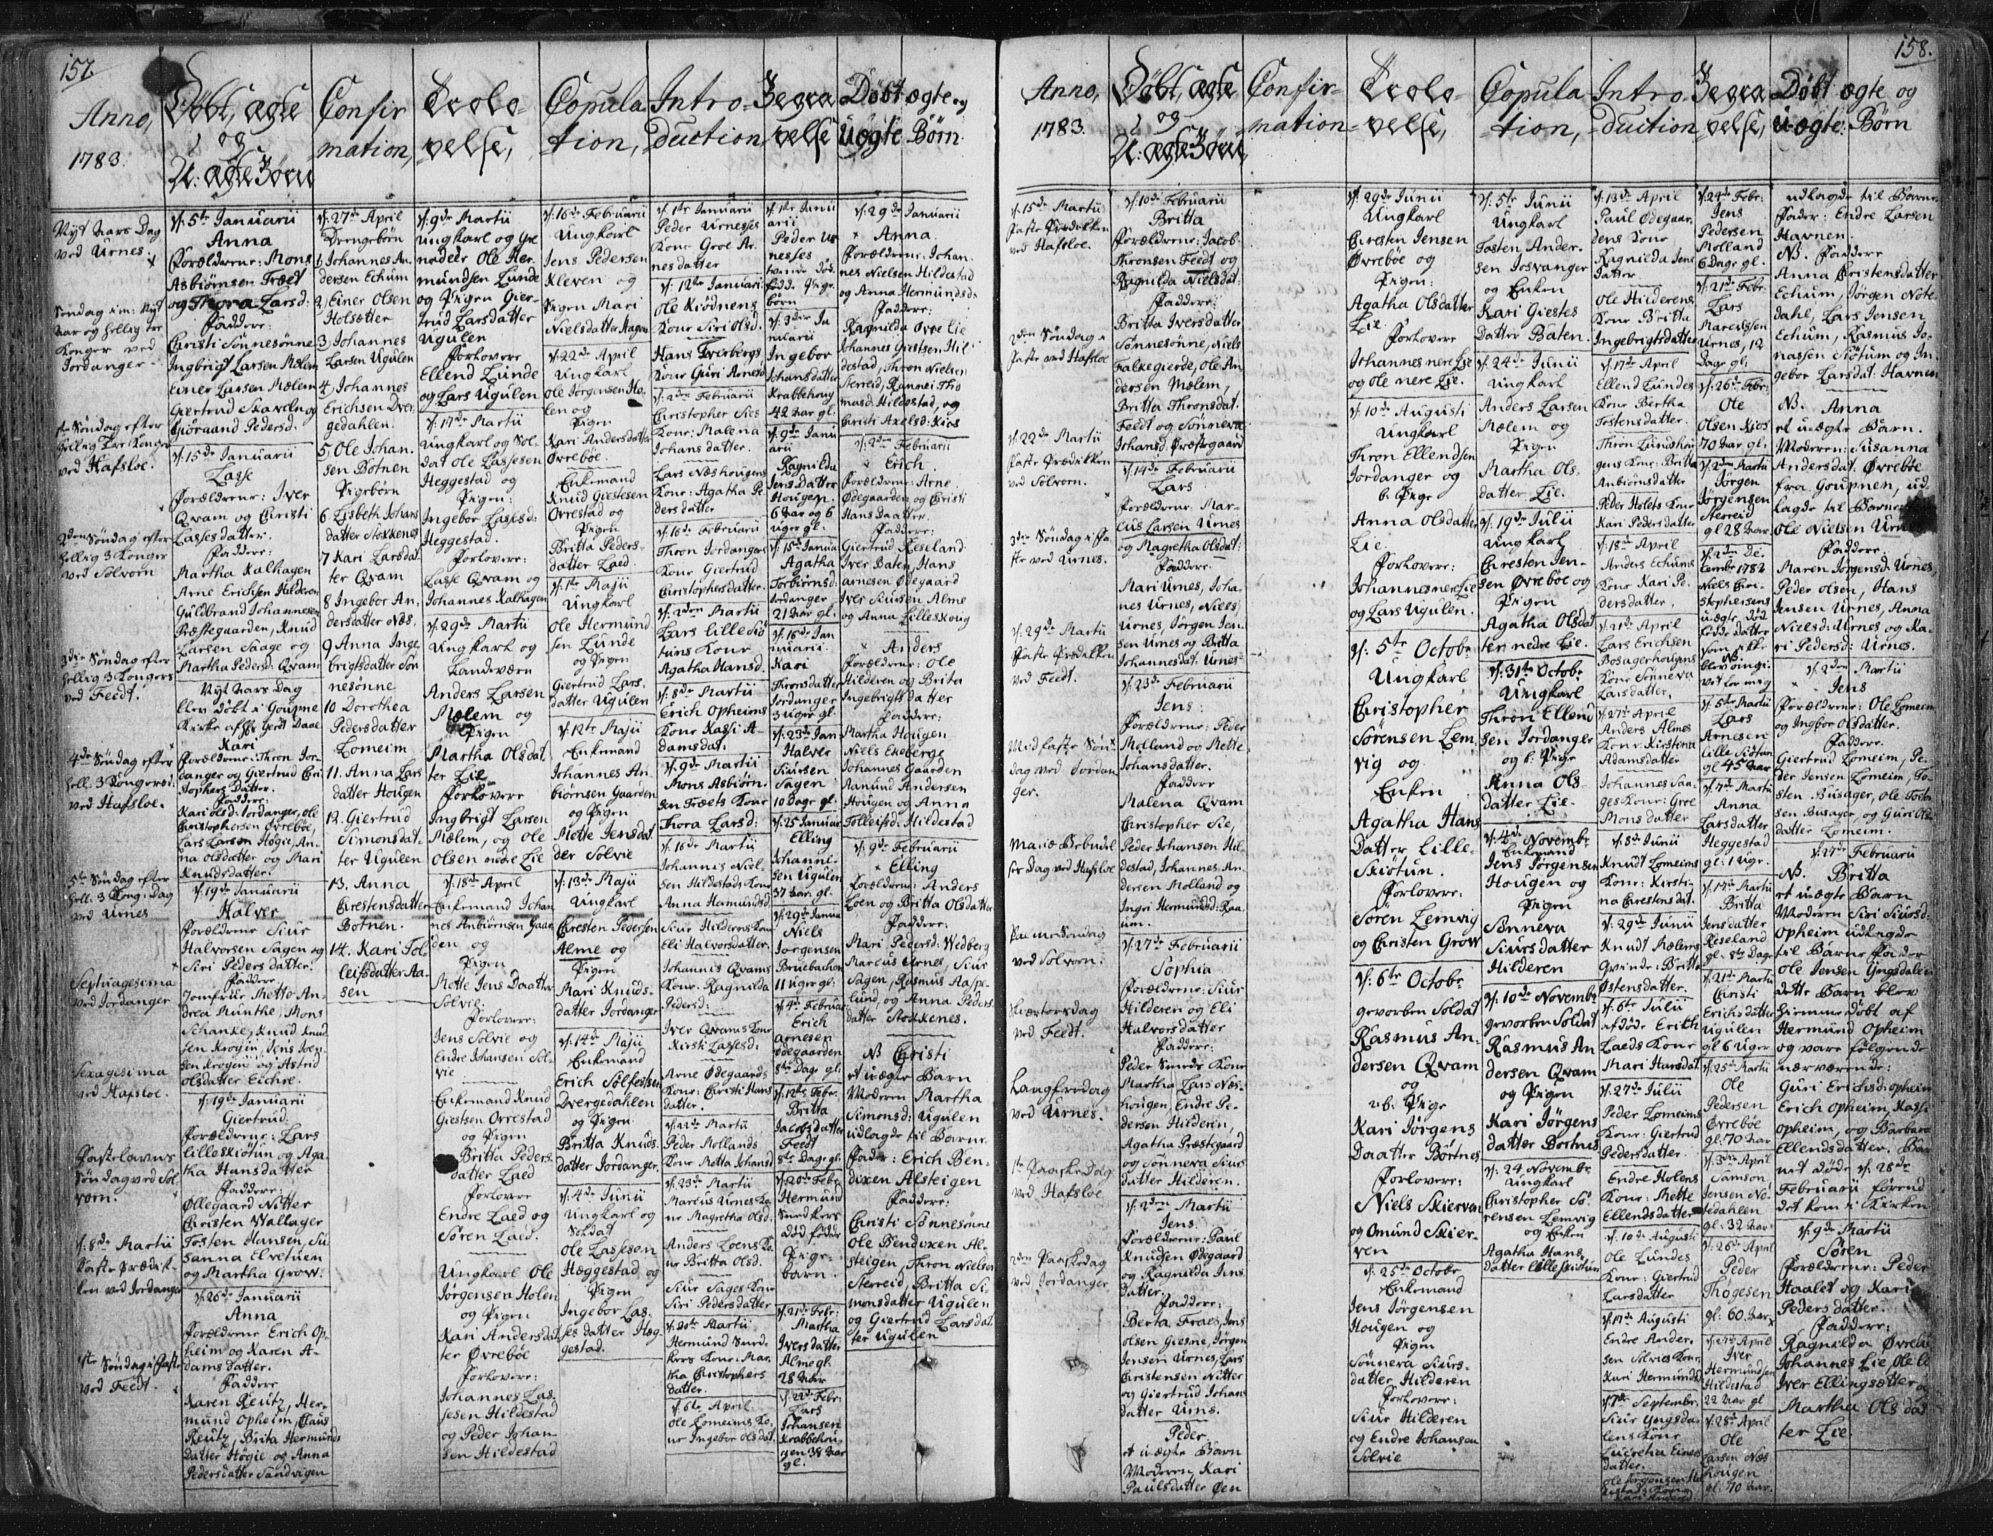 157.
Anno,
1783.
Nyt Aars Dag
ved Urnes.
Søndag im: Nyt
Aar og hellig tre
Konger ved
Jordanger
1ste Søndag efter
hellig tre Konger
ved Hafsloe.
2den Søndag efter
hellig 3 Konger
ved Solvorn
3die Søndag efter
hellig 3 Kongers
ved Feedt.
4de Søndag efter
hell. 3 Konger
ved Hafsloe.
5te Søndag efter
hell. 3 Kong. Dag
ved Urnes
Septuagesima
ved Jordanger
Sexagesima
ved Hafsloe.
Fastelavns
Søndag ved Sol-
vorn.
d. 8de Martii
Faste Prædik-
ken ved Jordanger
1ste Søndag i Faste
ved Feedt.
Døbt, ægte
og
U: ægte Børn
d. 5te Januarii
Anna
Forældrene: Mons
Asbiørnsen Træet
og Thora Larsd:
Faddere:
Christi Sønnesønne
Ingbrigt Larsen Mælem
Einer Larsen Mælem
Giertrud Skaveln og
Giøraand Pedersd.
d. 15de Januarii
Lasse
Forældrene: Iver
Qvam og Christi
Lassesdatter.
Faddere:
Martha Kalhagen
Arne Erichsen Hilderen
Guldbrand Johannesen
Præstegaarden, Knud
Larsen Saage og
Martha Pedersd: Qvam
Nyt Aars Dag
blev døbt i Goupne
Kirke af Hr Gert Daae
Kari
Forældrene: Thron Jor-
danger og Giertrud Chri-
stophers Datter.
Faddere:
Kari Olsd: Jordanger, Ole
Christophersen Øvrebøe,
Lars Larsen Høgie, An-
na Olsdatter og Mari
Knudsdatter.
d. 19de Januarii
Halver
Forældrene Siur
Halvorsen Sagen og
Siri Peders datter.
Faddere
Jomfrue Mette An-
drea Munthe, Mons
Schanke, Knud Knud-
sen Krogen, Jens Jen-
sen Krogen og Astrid
Olsdatter Eichre.
d. 19de Januarii
Giertrud
Forældrene: Lars
Lilleskiøtun og Aga-
tha Hansdatter
Faddere
Ollegaard Nitter
Christen Wallager
Tosten Hansen, Su-
sanna Elvetuen
og Martha Grow.
d. 26de Januarii
Anna
Forældrene Erich Op-
heim og Karen A-
dams Datter.
Faddere
Karen Reutz, Her-
mund Opheim, Claus
Reutz, Brita Hermunds
Datter Høgie og Anna
Pedersdatter Sandvigen
Confir
mation,
d. 27de April
Drengebørn
1 Johannes An-
dersen Echum
2, Einer Olsen
Holsætter
3 Johannes
Larsen Ugulen
4, Johannes
Erichsen Dver-
gedahlen.
5, Ole Johan-
sen Botnen
Pigebørn
6 Lisbeth Johans
datter Stokkenes
7 Kari Larsdat-
ter Qvam
8 Ingebor An-
dersdatter Næs.
9 Anna Inge-
brigtsdatter Søn-
nesønne
10 Dorothea
Pedersdatter
Lomeim
11. Anna Lars
datter Hougen
12. Giertrud
Simonsdat-
ter Ugulen
13. Anna
Christensdatter
Botnen.
14. Kari Tol-
leifsdatter Aa-
sen
Trolo-
velse,
d. 9de Martii
Ungkarl og Gre-
nadeer Ole Her-
mundsen Lunde
og Pigen Gier-
trud Larsdatter
Ugulen
Forlovere
Ellend Lunde
og Lars Ugulen
d. 17de Martii
Ungkarl og Sol-
dat Ole Lassesen
Heggestad og
Pigen:
Ingebor Lassesd:
Heggestad.
Forlovere:
Lasse Qvam og
Johannes Kalhagen
d. 29de Martii
Ungkarl og
Landværn
Anders Larsen
Mælem og
Pigen
Martha Olsdat-
ter Lie
Forlovere
Ingbrigt Larsen
Mælem, og Ole
Olsen nedre Lie
d. 18de April
Enkemand Johan-
nes Anbiørnsen Gaar-
den og
Pigen
Mette Jens Daatter
Solvie.
Forlovere:
Jens Solvie og
Endre Johansen Sol-
vie
Enkemand Knud
Giestsen Orrestad
og Pigen
Britta Peders-
datter Laed
Forlovere
Endre Laed og
Søren Laed.
Ungkarl Ole
Jørgensen Holen
og Pigen
Kari Andersdat-
ter Øvrebøe
Forlovere:
Johannes Las-
sesen Hildestad
og Peder Johan-
sen Hildestad
Copula
tion,
d. 16de Februarii
Ungkarl
Jens Pedersen
Kleven og
Pigen Mari
Nielsdatter Hagen
d. 22de April
Ungkarl
Ole Jørgensen Ho-
len og
Pigen
Kari Andersdatter
Øvrebøe.
Enkemand
Knud Giestesen
Orrestad og
Pigen
Britta Peders-
datter Laed.
d. 1ste Maji
Ungkarl
Ole Hermund
sen Lunde
og Pigen
Giertrud Lars-
datter Ugulen
d. 12te Maji
Enkemand
Johannes An-
biørnsen Gaarden
og Pigen
Mette Jensdat-
der Solvie
d. 13de Maji
Ungkarl
Christen Pedersen
Alme og
Pigen
Mari Knuds-
datter Jordanger
d. 14de Maji
Enkemand
Erich Solfestsen
Dvergedahlen
og Pigen
Britta Knuds-
datter Jordanger
d. 4de Junii
Ungkarl og
Soldat
Ole Lassesen
Heggestad og
Pigen
Ingebor Las-
ses datter Heg-
gestad.
Intro-
duction
d. 1ste Januarii
Peder Urneses
Kone Groe Ar-
nesdatter
d. 12te Januarii
Ole Kiødnens
Kone Siri Olsd.
Hans Tverbergs
Kone Guri Arnesd
d. 2den Februarii
Christopher Sies
Kone: Malena
Johansdatter.
Lars Næshougens
Kone: Agatha Pe-
dersdatter
d. 16de Februarii
Thron Jordangers
Kone Giertrud
Christophersdatter.
d. 2den Martii
Lars Lille Skiø-
tuns Kone
Agatha Hansd.
d. 8de Martii
Erich Opheims
Kone Kassi A-
damsdat.
d. 9de Martii
Mons Asbiørn-
sen Træets Kone
Thora Larsd:
d. 16de Martii
Johannis Niel-
sen Hildestads Kone
Anna Hermundsd:
Siur Hilderens Kone
Eli Halvorsdatter.
Johannis Qvams
Kone: Ragnilda
Pedersd:
Iver Qvams Kone
Kirsti Lassesd:
Arne Ødegaards
Kone: Christi Hans
datter.
d. 22de Martii
Peder Mollands
Kone Metta Johansd
d. 23de Martii
Marcus Urnes Ko-
ne Magretha Olsd:
Anders Loens Ko-
ne Britta Olsd.
Siur Sages Kone
Siri Pedersdatter
d. 30te Martii
Hermund Smed-
kers Kone: Mar-
tha Christophers
datter.
d. 6te April
Ole Lomeims Ko-
ne Ingebor Olsdat.
Begra
velse
d. 1ste Janu
arii
Peder Ur-
nesses
tvende død-
fødde Pige-
børn
d. 3die Ja-
nuarii
Ingebor
Johansdatter
Krabbehoug
42 Aar gl.
d. 9de Janu
arii
Ragnilda
Jensdatter
Hougen.
6 Aar og 6
uger gl.
d. 15de Janua
Agatha
Torbiørnsd.
Jordanger
21 Aar gl.
d. 16de Jan
nuarii.
Kari
Thronsdatter
Jordanger
3 uger gl.
d. 23de Jan
Halver
Siursen
Sagen
10 Dage gl.
d. 25 Januar
Elling
Johanne-
sen Ugulen
37 Aar gl.
d. 29de Janua
Niels
Jørgensen
Bruebachen
11 uger gl.
d. 4de Februar
Erich
Arnesen
Ødegaarden
8te Dage gl.
d. 12te Febr.
Britta
Jacobsdatter
Feedt
8te Dage gl.
d. 20de Febr
Hermund
Smedkers
død fødde
Pige-
barn.
d. 21de Febr
Martha
Iversdatter
Alme gl.
28 Aar
d. 22de Febr:
Lars
Johansen
Krabbehou-
gen 38 Aar
gl.
Døbt ægte og
Uægte Børn
d. 29de Januarii
Anna.
Forældrene: Johan-
nes Nielsen Hildestad
og Anna Hermundsd:
Faddere:
Ragnilda Øvre Lie
Johannes Giestsen Hil-
destad, Thron Nielsen
Sterreid, Rannei Tho-
masd Hildestad, og
Christi Axelsd: Kios
d. 2den Februarii
Erich.
Forældrene: Arne
Ødegaarden og Christi
Hans Daatter.
Faddere:
Giertrud Reseland
Iver Baten, Hans
Arnesen Ødegaard
Iver Siursen Alme
og Anna Lilleskoug
Anders
Forældrene: Ole
Hilderen og Brita
Ingebrigts Datter
Faddere:
Martha Hougen
Niels Ekeberge
Johannes Gaarden
Aamund Andersen
Hougen og Anna
Tolleifsd: Hildestad
d. 9de Februarii
Elling
Forældrene: Anders
Loen og Britta Olsdatter
Faddere:
Mari Pedersd: Wedberg
Marcus Urnes, Siur
Sagen, Rasmus Aaspe-
lund, og Anna Peders-
datter Stokkenes.
NB Christi
et uægte Barn
Moderen Martha
Simonsd: Ugulen
udlagde til Barne-
fader: Erich Ben-
dixen Alsteigen
Faddere:
Christi Sønnesønne
Ole Bendixen Al-
steigen, Thron Nielsen
Sterreid, Britta Si-
monsdatter Ugulen
og Giertrud Larsdat-
ter Ugulen
158.
Anno,
1783.
d. 15de Martii
Faste Prædikken
ved Hafsloe.
2den Søndag i
Faste ved Hafsloe
d. 22de Martii
Faste Prædikken
ved Solvorn.
3die Søndag i Fa-
ste ved Urnes.
d. 29de Martii
Faste Prædikken
ved Feedt.
Midfaste Søn-
dag ved Jordan-
ger.
Mariæ Bebudel-
ses Dag ved Hafsloe
Palmesøndag
ved Solvorn.
Skiærtorsdag
ved Feedt.
Langfredag
ved Urnes.
1ste Paaskedag
ved Hafsloe.
2den Paaskedag
ved Jordanger.
Døbt, ægte
og
U: ægte Børn
d. 10de Februarii
Britta
Forældrene: Jacob
Thronsen Feedt og
Ragnilda Nielsdat.
Faddere:
Britta Iversdatter
Sønnesønne, Niels
Falkegierde, Ole An-
dersen Molem,
Britta Thronsdat.
Feedt og Sønneva
Johansd. Præstegaard
d. 14de Februarii
Lars
Forældrene: Mar-
cus Larsen Urnes
og Magretha Olsdat:
Faddere:
Mari Urnes, Joha-
nes Urnes, Niels
Urnes, Jørgen Jen-
sen Urnes og Britta
Johannesdat. Urnes
d. 23de Februarii
Jens
Forældrene: Peder
Molland og Mette
Johansdatter.
Faddere
Malena Qvam
Christopher Sie,
Peder Johansen Hil-
destad, Johannes An-
dersen Molland og
Ingri Hermundsd: Raa-
um.
d. 27de Februarii
Sophia
Forældrene: Siur
Hilderen og Eli
Halvorsdatter
Faddere:
Peder Smeds Kone
Martha Lars Næs-
hougen, Endre Pe-
dersen Hilderen,
Agatha Præstegaard
og Sønneva Siurs
datter Hilderen.
d. 2den Martii
Jens.
Forældrene: Paul
Knudsen Ødegaard
og Ragnilda Jens
datter,
Faddere:
Berta Fraes, Jens
Olsen Giesne, Jørgen
Jensen Urnes, Lars
Christensen Nitter
og Giertrud Johans
datter Urnes.
Peder.
et uægte Barn
Moderen Kari
Paulsdatter Øen
Confir-
mation
Trolo-
velse,
d. 29de Junii
Ungkarl
Christen Jensen
Øvrebøe og
Pigen:
Agatha Olsdatter
Lie
Forlovere
Johannes nere Lie
og Ole nere Lie.
d. 10de Augusti
Ungkarl
Thron Ellendsen
Jordanger og
b. Pige
Anna Olsdatter
Lie.
Forlovere:
Johannes nere Lie
og Lars Ugulen.
d. 5te Octobr.
Ungkarl
Christopher
Sørensen Lem-
vig og
Enken
Agatha Hans
Datter Lille-
skiøtun.
Forlovere:
Søren Lemvig
og Christen Grow
d. 6te Octobr
geworben Soldat
Rasmus An-
dersen Qvam
og
b: Pige
Kari Jørgens
Daatter Børtnes
Forlovere:
Niels Skierven
og Omund Skier-
ven
d. 25de Octobr
Enkemand
Jens Jørgensen
Hougen og
Pigen
Sønneva Siurs-
datter Hilderen
Forlovere:
Siur Hilderen
og Endre Johansen
Solvie
Copula
tion,
d. 5te Junii
Ungkarl
Tosten Ander-
sen Josvanger
og Enken
Kari Giestes
Datter Baten.
d. 24de Junii
Ungkarl
Anders Larsen
Mælem og
Pigen
Martha Ols-
datter Lie.
d. 19de Julii
Ungkarl
Christen Jen-
sen Øvrebøe og
Pigen
Agatha Olsdat
ter nedre Lie.
d. 31te Octobr
Ungkarl
Thron Ellend
sen Jordanger
og b. Pige
Anna Ols-
datter Lie.
d. 4de Novembr
Enkemand
Jens Jørgensen
Hougen og
Pigen
Sønneva
Siursdatter
Hilderen
d. 10de Novembr
geworben Soldat
Rasmus An
dersen Qvam
og Pigen
Kari Jørgens
datter Bortnes
d. 24 Novembr
Ungkarl
Christopher Sø-
rensen Lemvig
og Enken
Agatha Hans
datter Lilleskiøtun
Intro-
duction
d. 13de April
Paul Ødegaar-
dens Kone
Ragnilda Jens
datter
Ole Hilderens
Kone Britta
Ingebrigtsdatter
d. 17de April
Ellend Lundes
Kone Bertha
Tostensdatter
Thron Lundshou-
gens Kone: Britta
Anbiørnsdatter
Peder Holets Kone
Kari Pedersdatter
d. 18de April
Anders Echums
Kone Kari Pe-
dersdatter.
d. 21de April
Lars Erichsen
Bosagerhougens
Kone Sønneva
Larsdatter,
d. 27de April
Anders Almes
Kone: Kirstena
Adamsdatter
Johannes Saa-
ges Kone: Groe
Monsdatter
d. 8de Junii
Knudt Lomeims
Kone: Kirsti-
na Christensdat.
d. 29de Junii
Knudt Molems
Qvinde: Britte
Østensdatter.
d. 6te Julii
afdøde Erich
Laeds Kone
Mari Hansdat.
d. 27de Julii
Peder Lomeims
Kone: Giertrud
Pedersdatter.
Endre Holens
Kone: Mette
Ellendsdatter
d. 10de Augusti
Ole Lundes
Kone: Giertrud
Larsdatter
d. 17de Augusti
Endre Ander-
sen Solvies Kone
Kari Hermundsd
d. 7de Septembr
Siur Yngsda-
lens Kone
Lucretia Einers
datter.
Ole Jørgensen Hil-
destads Kone
Kari Andersd
Begra
velse,
d. 24de Febr:
Jens
Pedersen
Molland
6 Dage gl.
d. 21de Febr:
Lars
Marcussen
Urnes, 12
Dage gl.
d. 26de Febr:
Ole
Olsen Kios
70 Aar gl.
d. 2den Martii
Jørgen
Jørgensen
Sterreid
gl 28 Aar.
d. 2den De-
cembr 1782
Niels Chri-
stophersens
uægte død
fødde datter
som ikke
blev angi-
vet for mig
d. 5te Martii
Lars
Arnesen
Lille Skiøtun
gl 45 Aar
d. 7de Martii
Anna
Larsdatter
Heggestad
gl: 1 uge.
d. 17de Martii
Britta
Jensdatter
Reseland
gl. 8te Dage
d. 21de Martii
Christi
Erichsdatter
Ugulen
gl 6 Uger
d. 25de Martii
Ole
Pedersen
Øvrebøe
gl: 70 Aar
d. 3die April
Samson
Jensen Nø-
sedahlen
gl: 32 Aar
d. 26de April
Peder
Thogesen
gl: 60 Aar
d. 27de April
Iver
Hermundsen
Hildestad
22 Aar gl
d. 28de April
Ole
Larsen Næs
hougen
gl: 70 Aar.
Døbt ægte og
Uægte: Børn
udlagde til Barne-
fader: Endre Larsen
Havnen.
NB. Faddere
Anna Christensdatter
Echum, Jørgen Nete-
dahl, Lars Jensen
Echum, Rasmus Jo-
nassen Skiøtum og In-
gebor Larsdat. Havnen
NB. Anna
et uægte Barn.
Moderen: Susanna
Andersdat. Øvrebøe
fra Goupnen, ud-
lagde til Barnefader
Ole Nielsen Urnes
Faddere
Maren Jørgensd: Urnes,
Peder Olsen, Hans
Jensen Urnes, Anna
Nielsd: Urnes og Ka-
ri Pedersd: Urnes.
d. 2den Martii
Jens
Forældrene: Ole Lomeim
og Ingebor Olsdatter.
Faddere.
Giertrud Lomeim, Pe-
der Jensen Lomeim, To-
sten Busager, Ole Tosten
sen Busager, og Guri Ols
datter Lomeim.
d. 17de Februarii
NB. Britta
et uægte Barn
Moderen Siri Siursd:
Opheim udlagde
til Barne Fader
Ole Jensen Yngsdalen
dette Barn blev
hiemme døbt af
Hermund Opheim
og vare følgende
nærværende:
Guri Erichsd: Opheim
Erich Opheim, Kassi
Opheim, og Barbara
Ellendsdatter. Bar-
net døde d. 28de
Februarii førend
det kom i Kirken
d. 9de Martii
Søren
Forældrene: Peder
Haalet og Kari
Pedersdatter.
Faddere:
Ragnilda Øvrelie
Johannes Lie, Ole Lie
Iver Ellingsætter og
Martha Olsdat-
ter Lie.